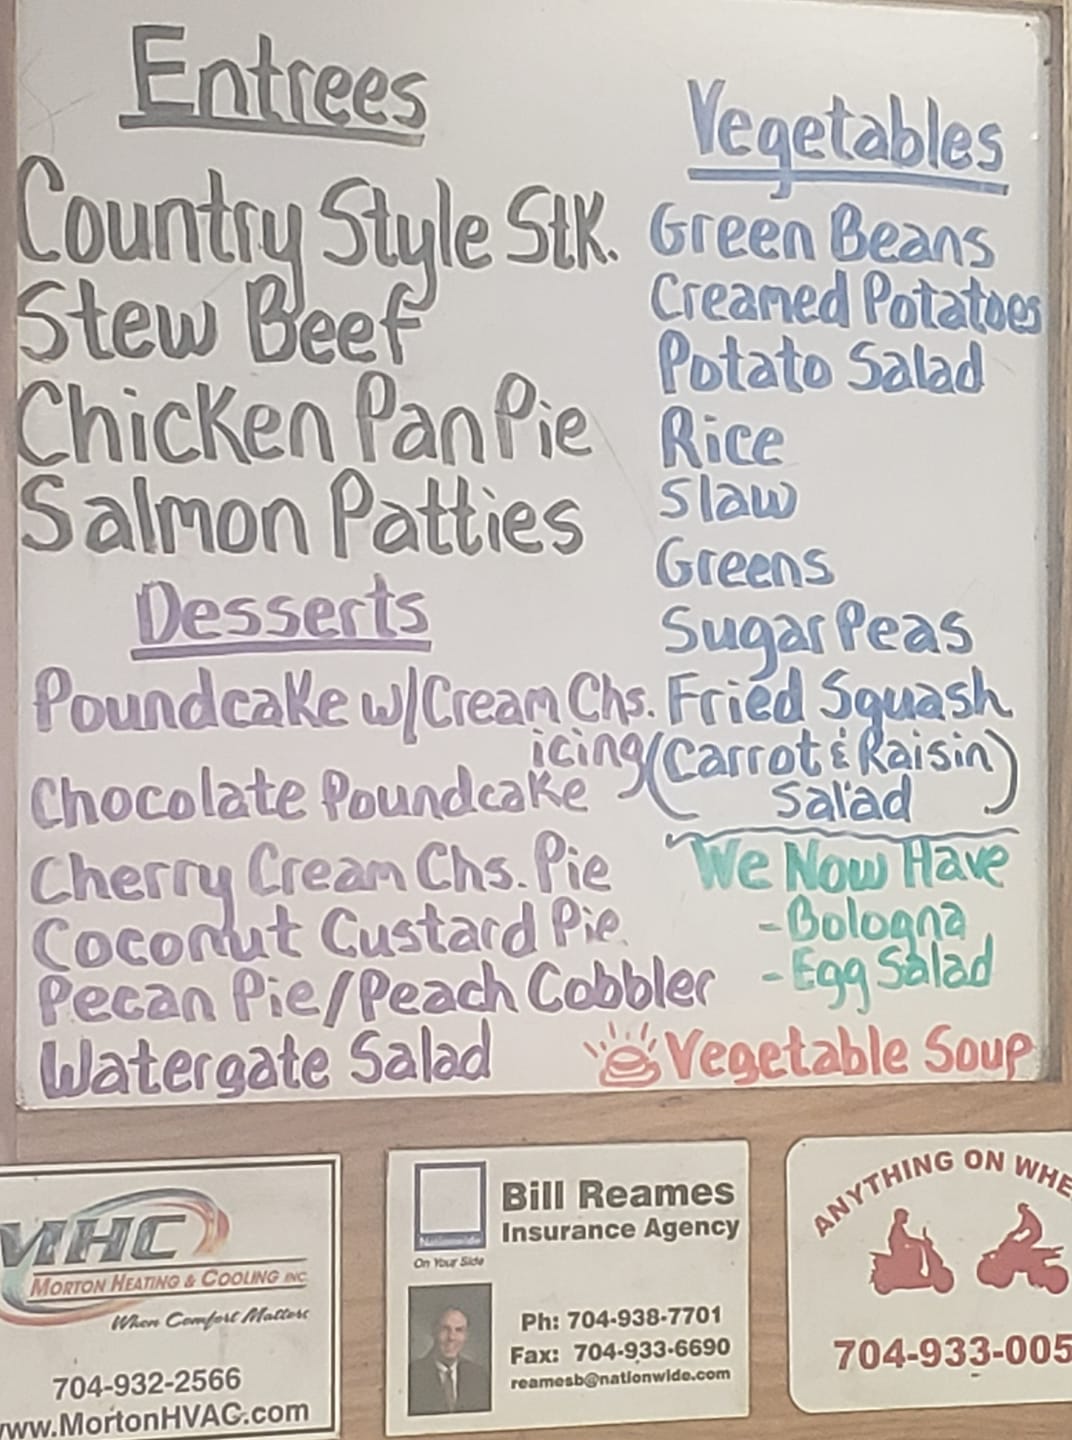 Entrees
Country Style Stk.
Stew Beef
Chicken Pan Pie
Salmon Patties
Desserts
Poundcake w/Cream Chs.
icing
Chocolate Poundcake
Cherry Cream Chs. Pie
Coconut Custard Pie
Pecan Pie/Peach Cobbler
Watergate Salad
Vegetables
Green Beans
Creamed Potatoes
Potato Salad
Rice
Slaw
Greens
Sugar Peas
Fried Squash
(Carrot & Raisin)
Salad
We Now Have
- Bologna
- Egg Salad
Vegetable Soup
MHC
MORTON HEATING & COOLING INC
When Comfort Matters
704-932-2566
www.MortonHVAC.com
Nationwide
On Your Side
Bill Reames
Insurance Agency
Ph: 704-938-7701
Fax: 704-933-6690
reamesb@nationwide.com
ANYTHING ON WHE
704-933-005